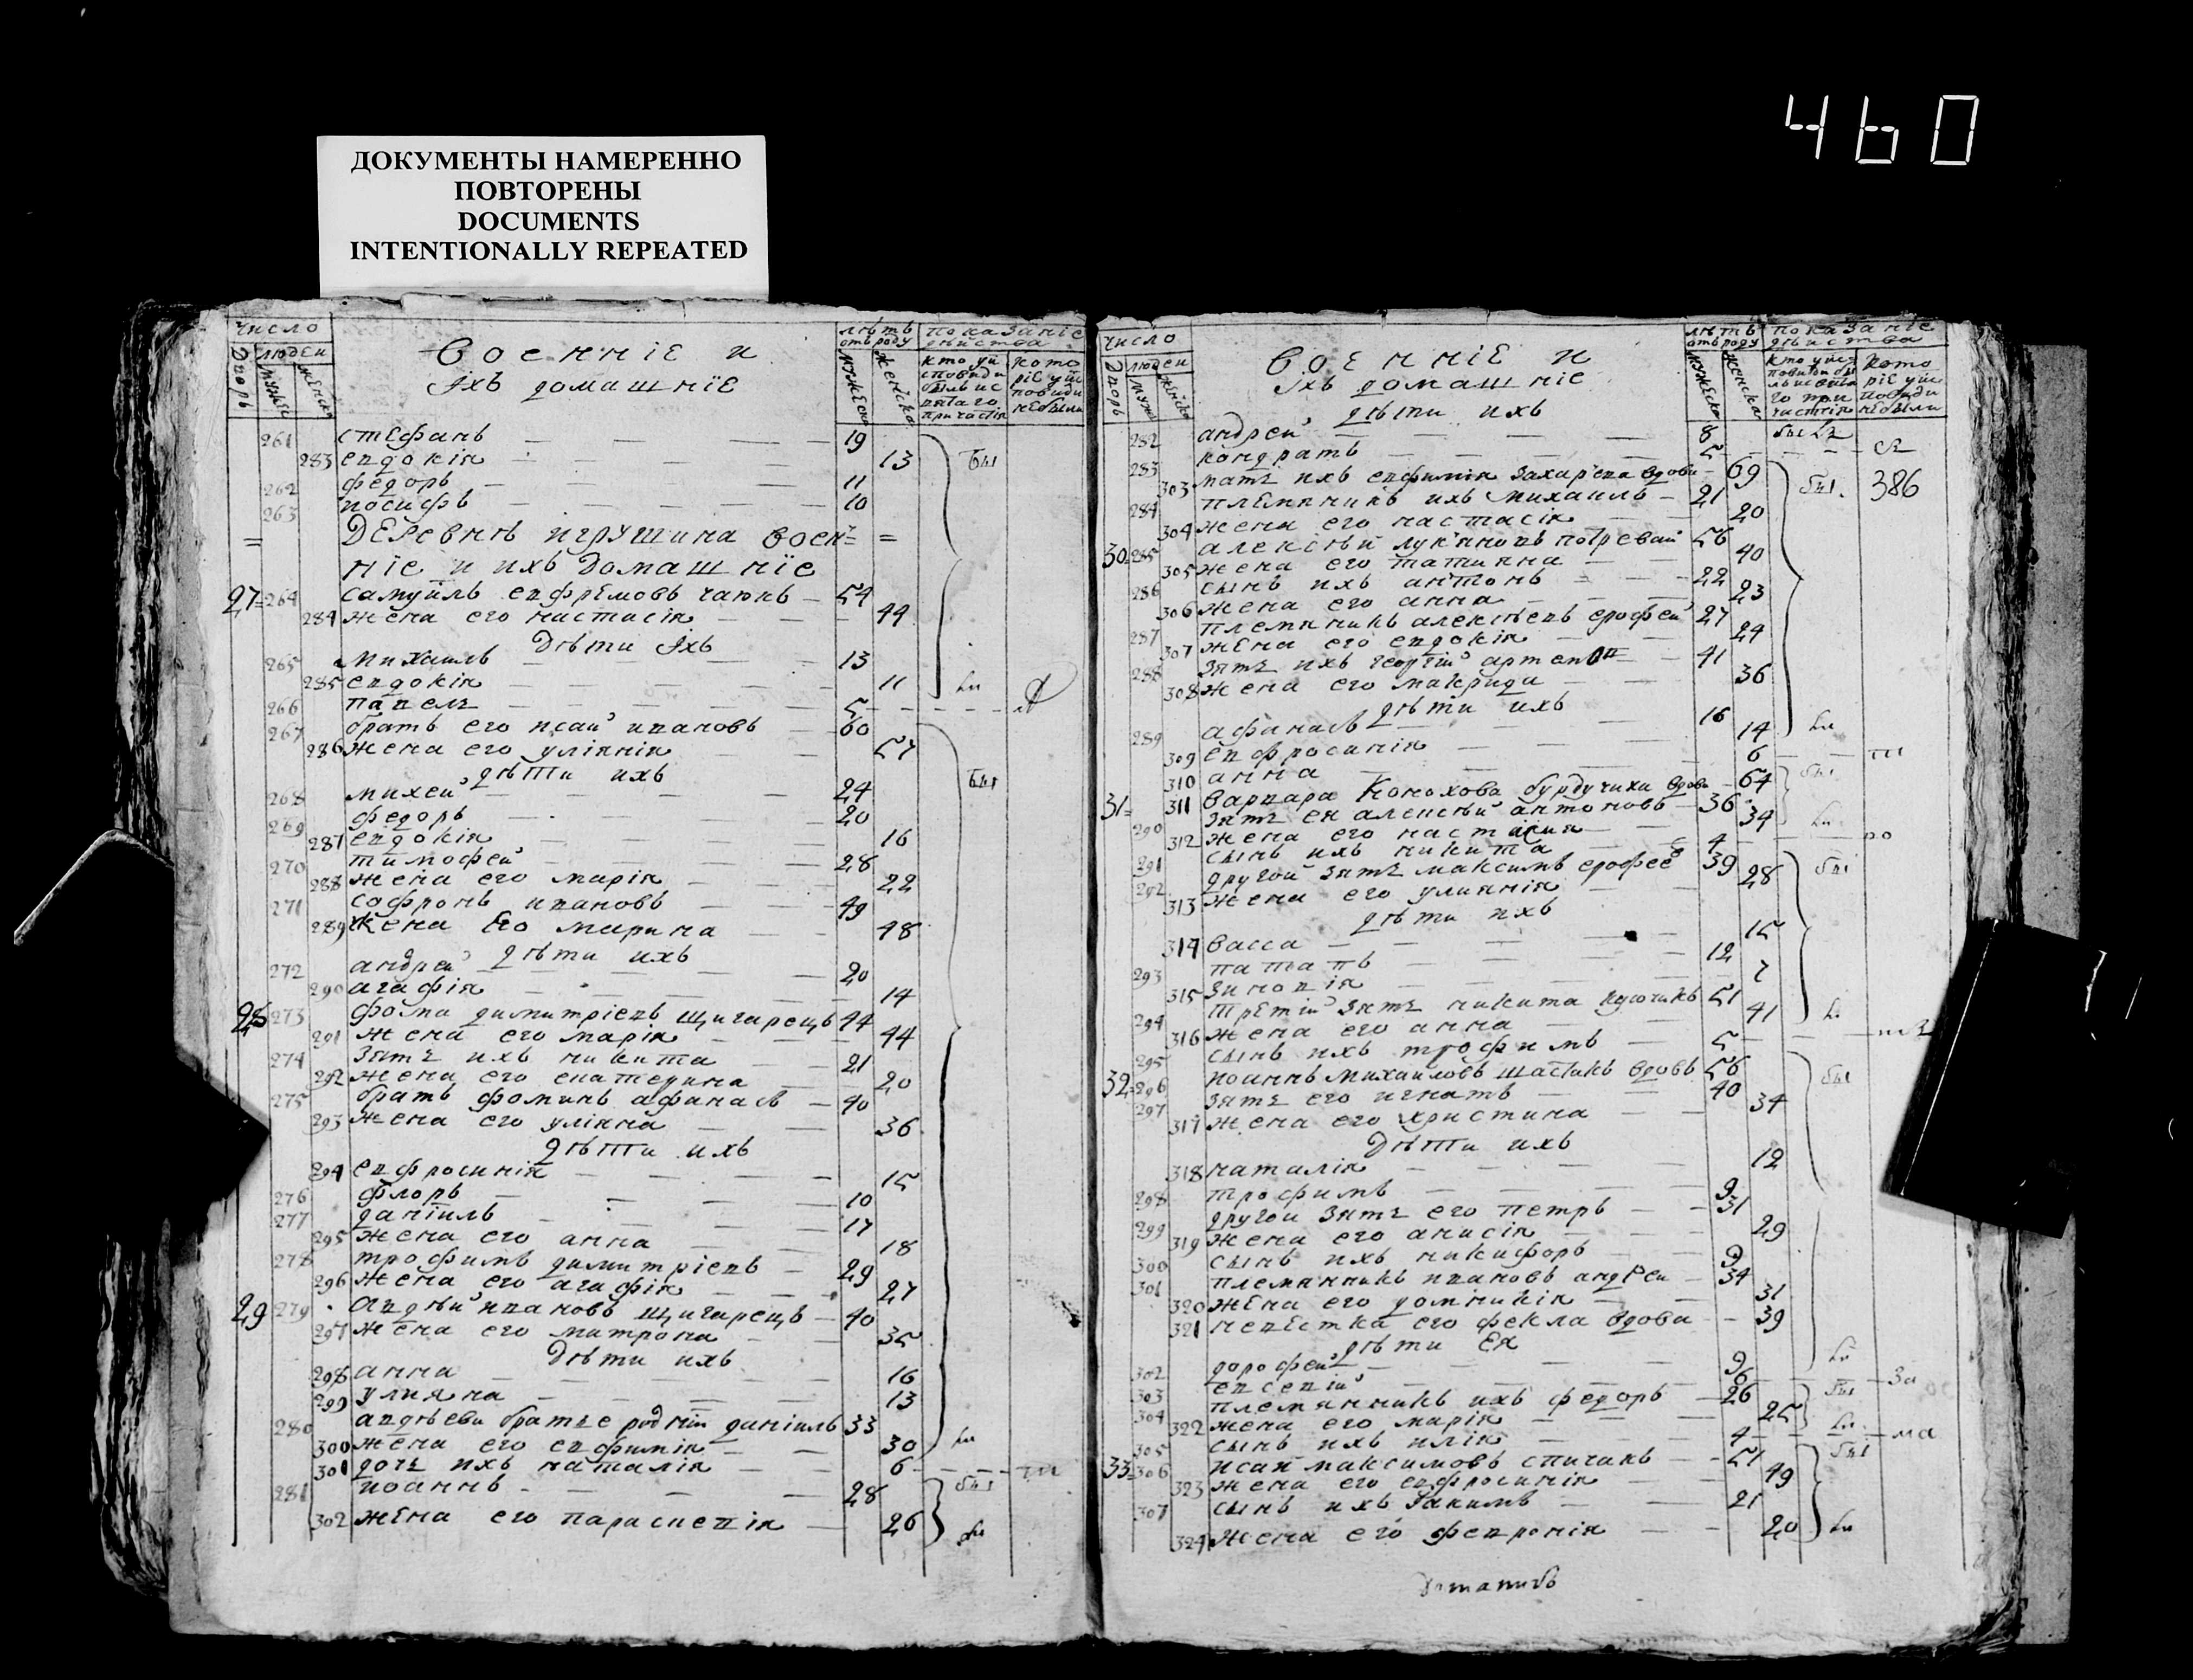 460
ДОКУМЕНТЫ НАМЕРЕННО
ПОВТОРЕНЫ
DOCUMENTS
INTENTIONALLY REPEATED
число
людеи
Военніе и
Іхъ домашніе
лѣтъ отъ роду
показаніе дѣиства
261 стефанъ 19
283 евдокія 13 бы
262 федоръ 11
263 иосифъ 10
деревнѣ игрушина воен=
ніе и ихъ домашніе
27 264 самуилъ ефремовъ чаюнъ 54
284 жена его настасія 44
дѣти іхъ
265 михаилъ 13
285 евдокія 11 ли
266 павелъ 5
267 братъ его исаи ивановъ 60
286 жена его уліянія 57
дѣти ихъ бы
268 михеи 24
269 федоръ 20
287 евдокія 16
270 тимофеи 28
288 жена его марія 22
271 софронъ ивановъ 49
289 жена его марина 48
дѣти ихъ
272 андреи 20
290 агафія 14
28 273 фома димитріевъ щигарецъ 44
291 жена его марія 44
274 зять ихъ никита 21
292 жена его екатерина 20
275 братъ фоминъ афанасъ 40
293 жена его уліяна 36
дѣти ихъ
294 евфросинія 15
276 флоръ 10
277 даніилъ 17
295 жена его анна 18
278 трофимъ димитріевъ 29
296 жена его агафія 27
29 279 авдѣи ивановъ щигарецъ 40
297 жена его матрона 35
дѣти ихъ
298 анна 16
299 улияна 13
280 авдѣеви братье родніи даніилъ 33
300 жена его евфимія 30 ли
301 дочь ихъ наталія 6
281 иоаннъ 28 бы
302 жена его параскевія 26 ли
число
людеи
Военніе и
Іхъ домашніе
лѣтъ отъ роду
показаніе дѣиства
дѣти ихъ
282 андреи 8
283 кондратъ 5
303 мать ихъ евфимія захарева вдова 69 бы. 386
284 племянникъ ихъ михаилъ 21
304 жена его настасія 20
30 285 алексѣи лукяновъ 56
305 жена его татияна 40
286 сынъ ихъ антонъ 22
306 жена его анна 23
287 племяникъ алексѣевъ ерофеи 27
307 жена его евдокія 24
288 зять ихъ георгіи 41
308 жена его макрида 36
дѣти ихъ
289 афанасъ 16
309 евфросинія 14 ли
310 анна 6
31 311 варвара Конохова бурдучиха вдова 64 бы
290 зять ея алексѣи антоновъ 36
312 жена его настасия 34 ли
291 сынъ ихъ никита 4 во
292 другои зять максимъ ерофее 39 бы
313 жена его улиянія 28
дѣти ихъ
314 васса 15
293 патапъ 12
315 зиновія 7
294 третіи зять никита 51
316 жена его анна 41 ли
295 сынъ ихъ трофимъ 5
32 296 иоаннъ михаиловъ шастикъ вдовъ 56 бы
297 зять его игнатъ 40
317 жена его христина 34
дѣти ихъ
318 наталія 12
298 трофимъ 9
299 другои зять его петръ 31
319 жена его анисія 29
300 сынъ ихъ никифоръ 9
301 племянникъ ивановъ андреи 34
320 жена его домникія 31
321 невестка его фекла вдова 39
дѣти ея
302 дорофеи 9 ли
303 евсевіи 6 за
304 племянникъ ихъ федоръ 26 бы
322 жена его марія 25 ли
305 сынъ ихъ илія 4 ма
33 306 исаи максимовъ спичакъ 51 бы
323 жена его евфросинія 49
307 сынъ ихъ 21
324 жена его февронія 20 ли